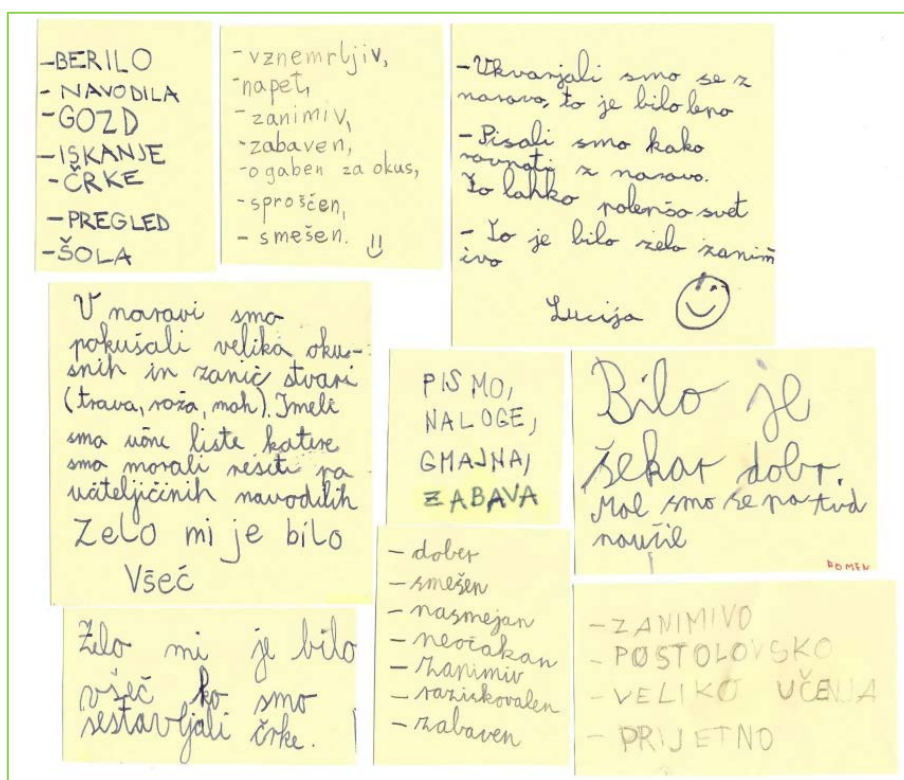 -BERILO
- NAVODILA
-GOZD
-ISKANJE
-ČRKE
-PREGLED
-ŠOLA
- vznemrljiv,
-napet,
- zanimiv,
- zabaven,
-ogaben za okus,
-sproščen,
- smešen. !!
-Ukvarjali smo se z
naravo, to je bilo lepo
-Pisali smo kako
ravnati z naravo.
To lahko polepšo svet
- To je bilo zelo zanim
ivo
Lucija
V naravi smo
pokušali velika oku-
snih in zanič stvari
(trava, roža, mah). Imeli
smo učne liste katere
smo morali rešiti pa
učiteljičinih navodilih
Zelo mi je bilo
Všeč
PISMO,
NALOGE,
GMAJNA,
ZABAVA
Bilo je
šekar dobr.
Mal smo se pa tud
naučil
DOMEN
Zelo mi je bilo
všeč ko smo
sestavljali črke.
- dober
- smešen
- nasmejan
- neočakan
- zanimiv
- raziskovalen
- zabaven
- ZANIMIVO
- POSTOLOVSKO
- VELIKO UČENJA
- PRIJETNO